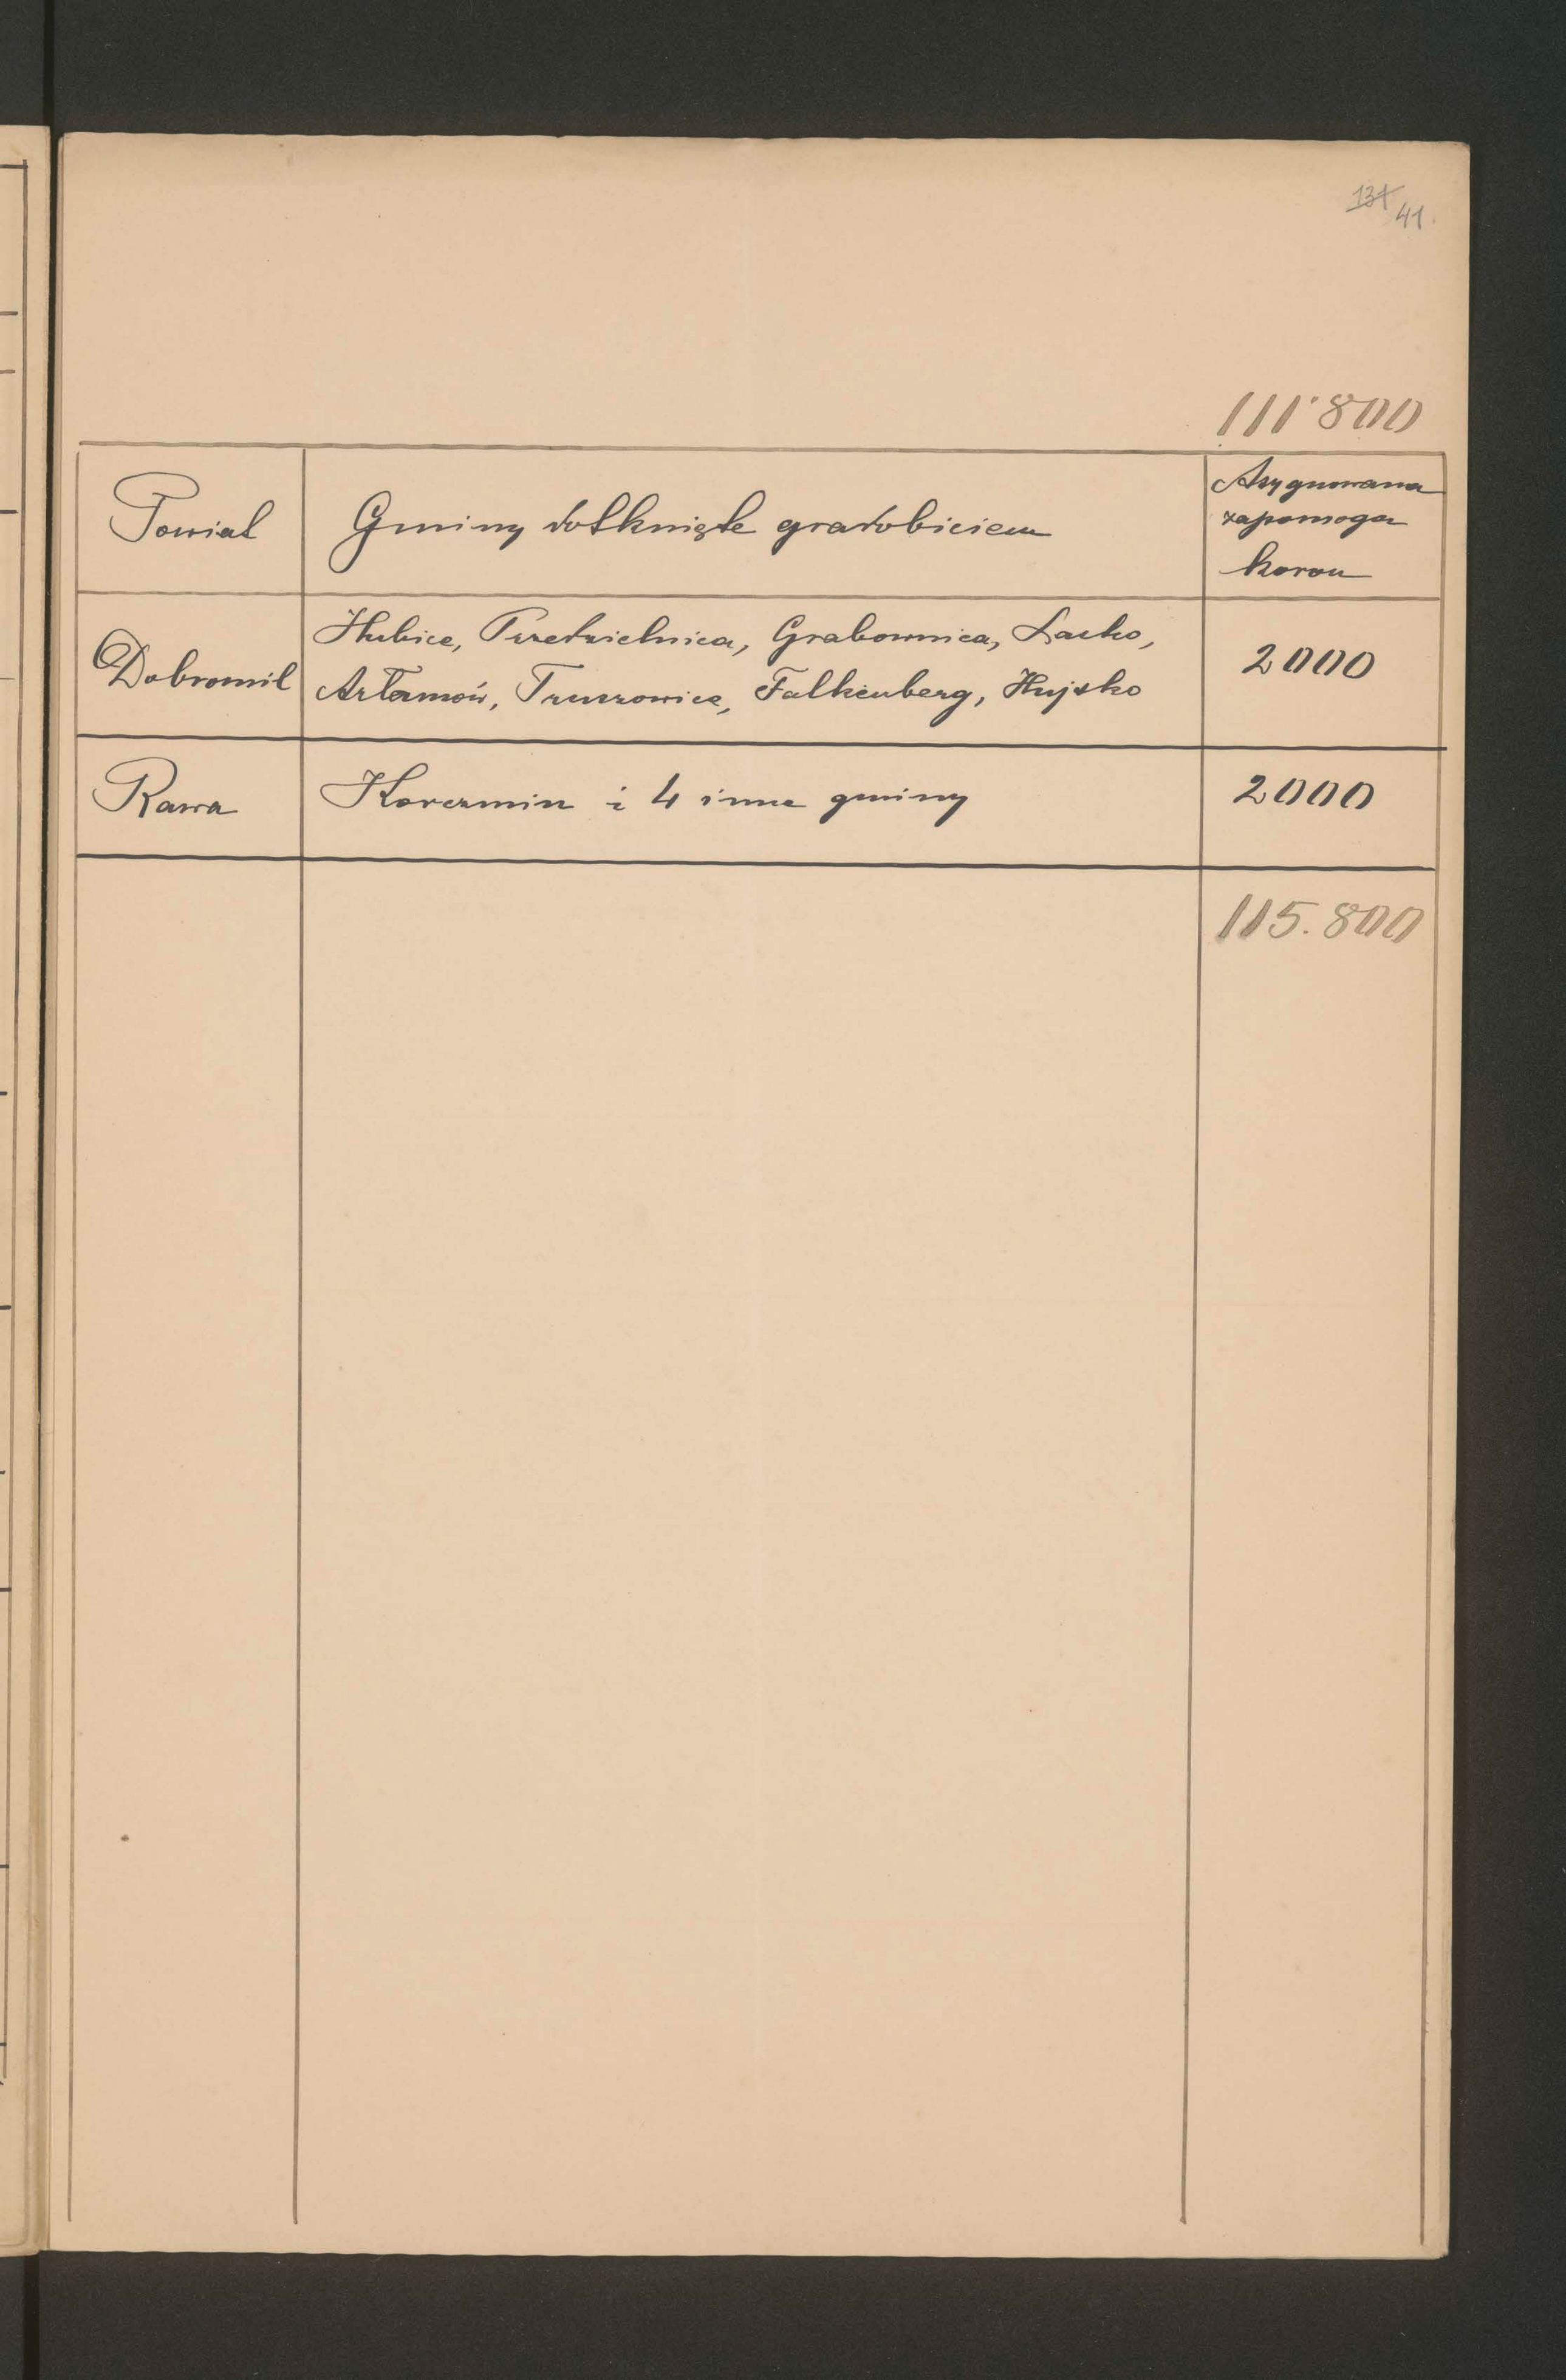 131 41.
111·800
Powiat
Gminy dotknięte gradobiciem
Asygnowana
zapomoga
koron
Dobromil
Hubice, Przedzielnica, Grabownica, Lacko,
Artamów, Truszowice, Falkenberg, Hujsko
2000
Rawa
Korczmin i 4 inne gminy
2000
115.800